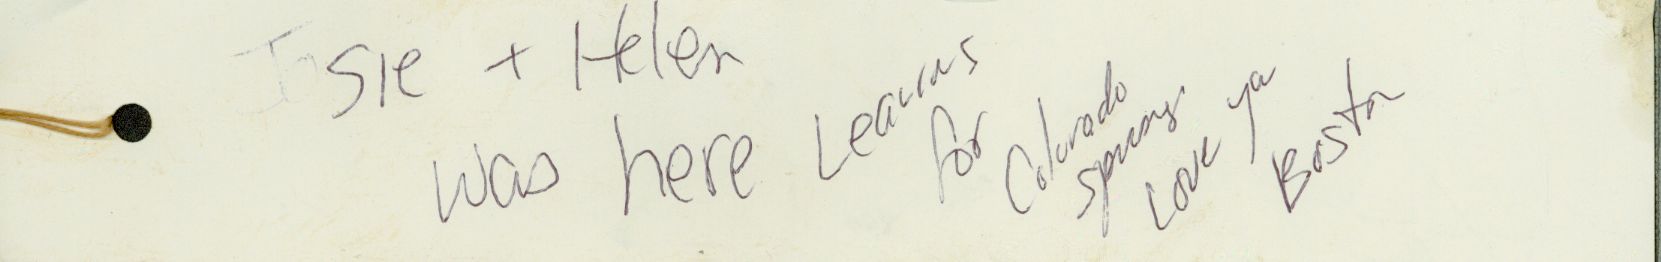 Josie + Helen
was here Leaving
for
Colorado
springs.
Love ya
Boston